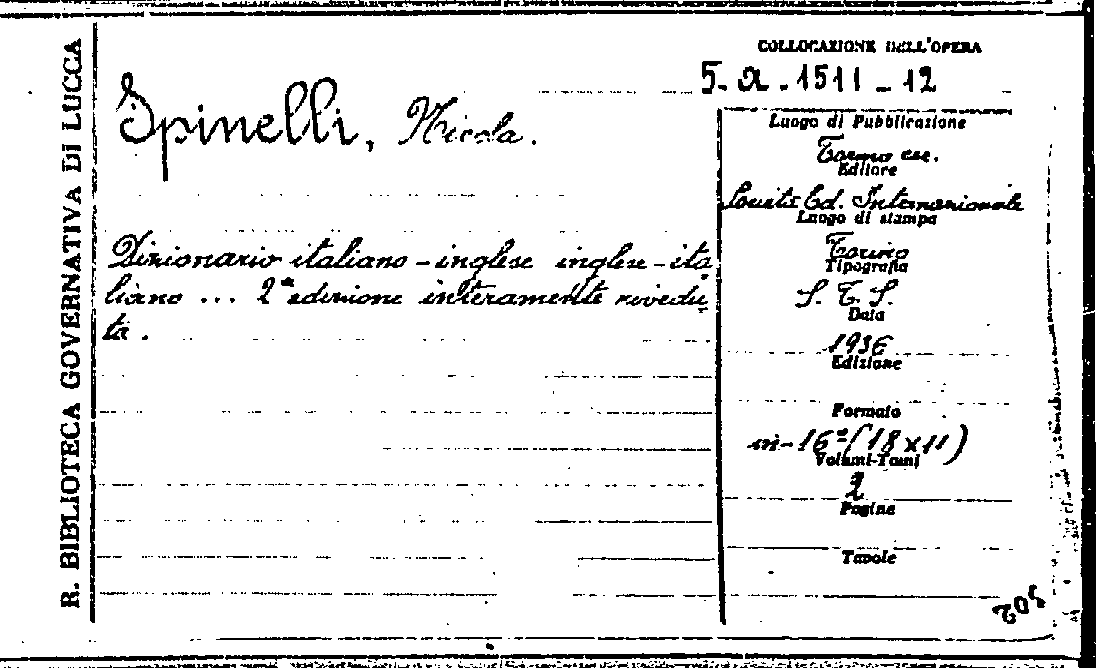 R. BIBLIOTECA GOVERNATIVA DI LUCCA
COLLOCAZIONE DELL'OPERA
5. a. 1511 - 12
Spinelli, Nicola.
Dizionario italiano - inglese inglese - ita
liano ... 2ª edizione interamente rivedu
ta.
Luogo di Pubblicazione
Torino ecc.
Editore
Società Ed. Internazionale
Luogo di stampa
Torino
Tipografia
S. T. S.
Data
1936
Edizione
Formato
in-16º (18 x 11)
Volumi-Tomi
2
Pagine
Tavole